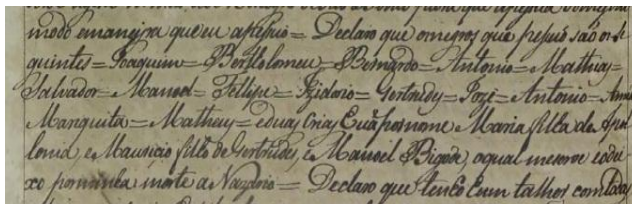 modo emaneira que eu apessuo = Declaro que os negros que pessuo são os se
guintes = Joaquim = Bertholomeu = Bernardo = Antonio = Matheus =
Salvador = Manoel = Fellipe = Izidorio = Gertrudes = Joze = Antonio = Anna
Manguita = Matheus = eduas crias Euã por nome Maria filla de Apo
lonia, e Mauricio fillo de Gertrudes, e Manoel Bigode, aqual mesmo eo dei
xo por minha morte a = Declaro que tenho hum talhos com todas